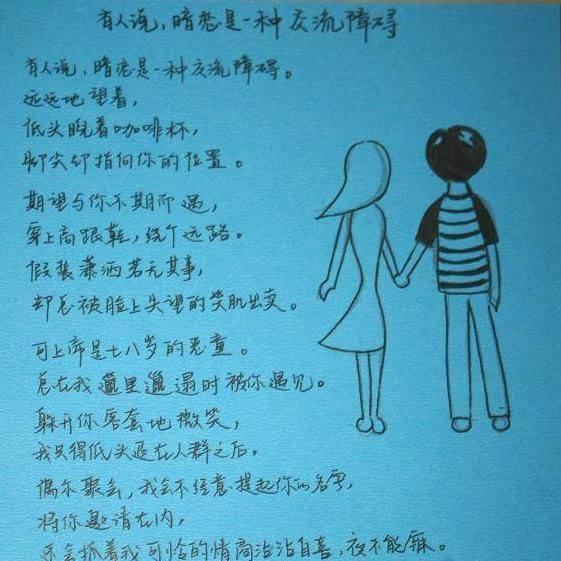 有人说，暗恋是一种交流障碍
有人说，暗恋是一种交流障碍。
远远地望着，
低头睨着咖啡杯，
脚尖却指向你的位置。
期望与你不期而遇，
穿上高跟鞋，绕个远路。
假装潇洒若无其事，
却总被脸上失望的笑肌出卖。
可上帝是七八岁的恶童。
总在我邋里邋遢时被你遇见。
躲开你客套地微笑，
我只得低头返在人群之后。
偶尔聚会，我会不经意提起你的名字，
将你邀请在内，
还会抓着我可怜的情商沾沾自喜，夜不能寐。